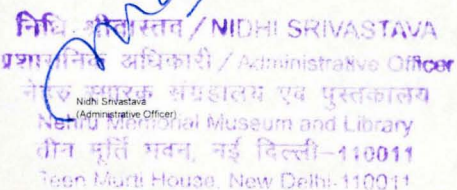 निधि श्रीवास्तव / NIDHI SRIVASTAVA
प्रशासनिक अधिकारी / Administrative Officer
नेहरु स्मारक संग्रहालय एवं पुस्तकालय
Nidhi Srivastava
(Administrative Officer)
Nehru Memorial Museum and Library
तीन मूर्ति भवन, नई दिल्ली-110011
Teen Murti House, New Delhi-110011